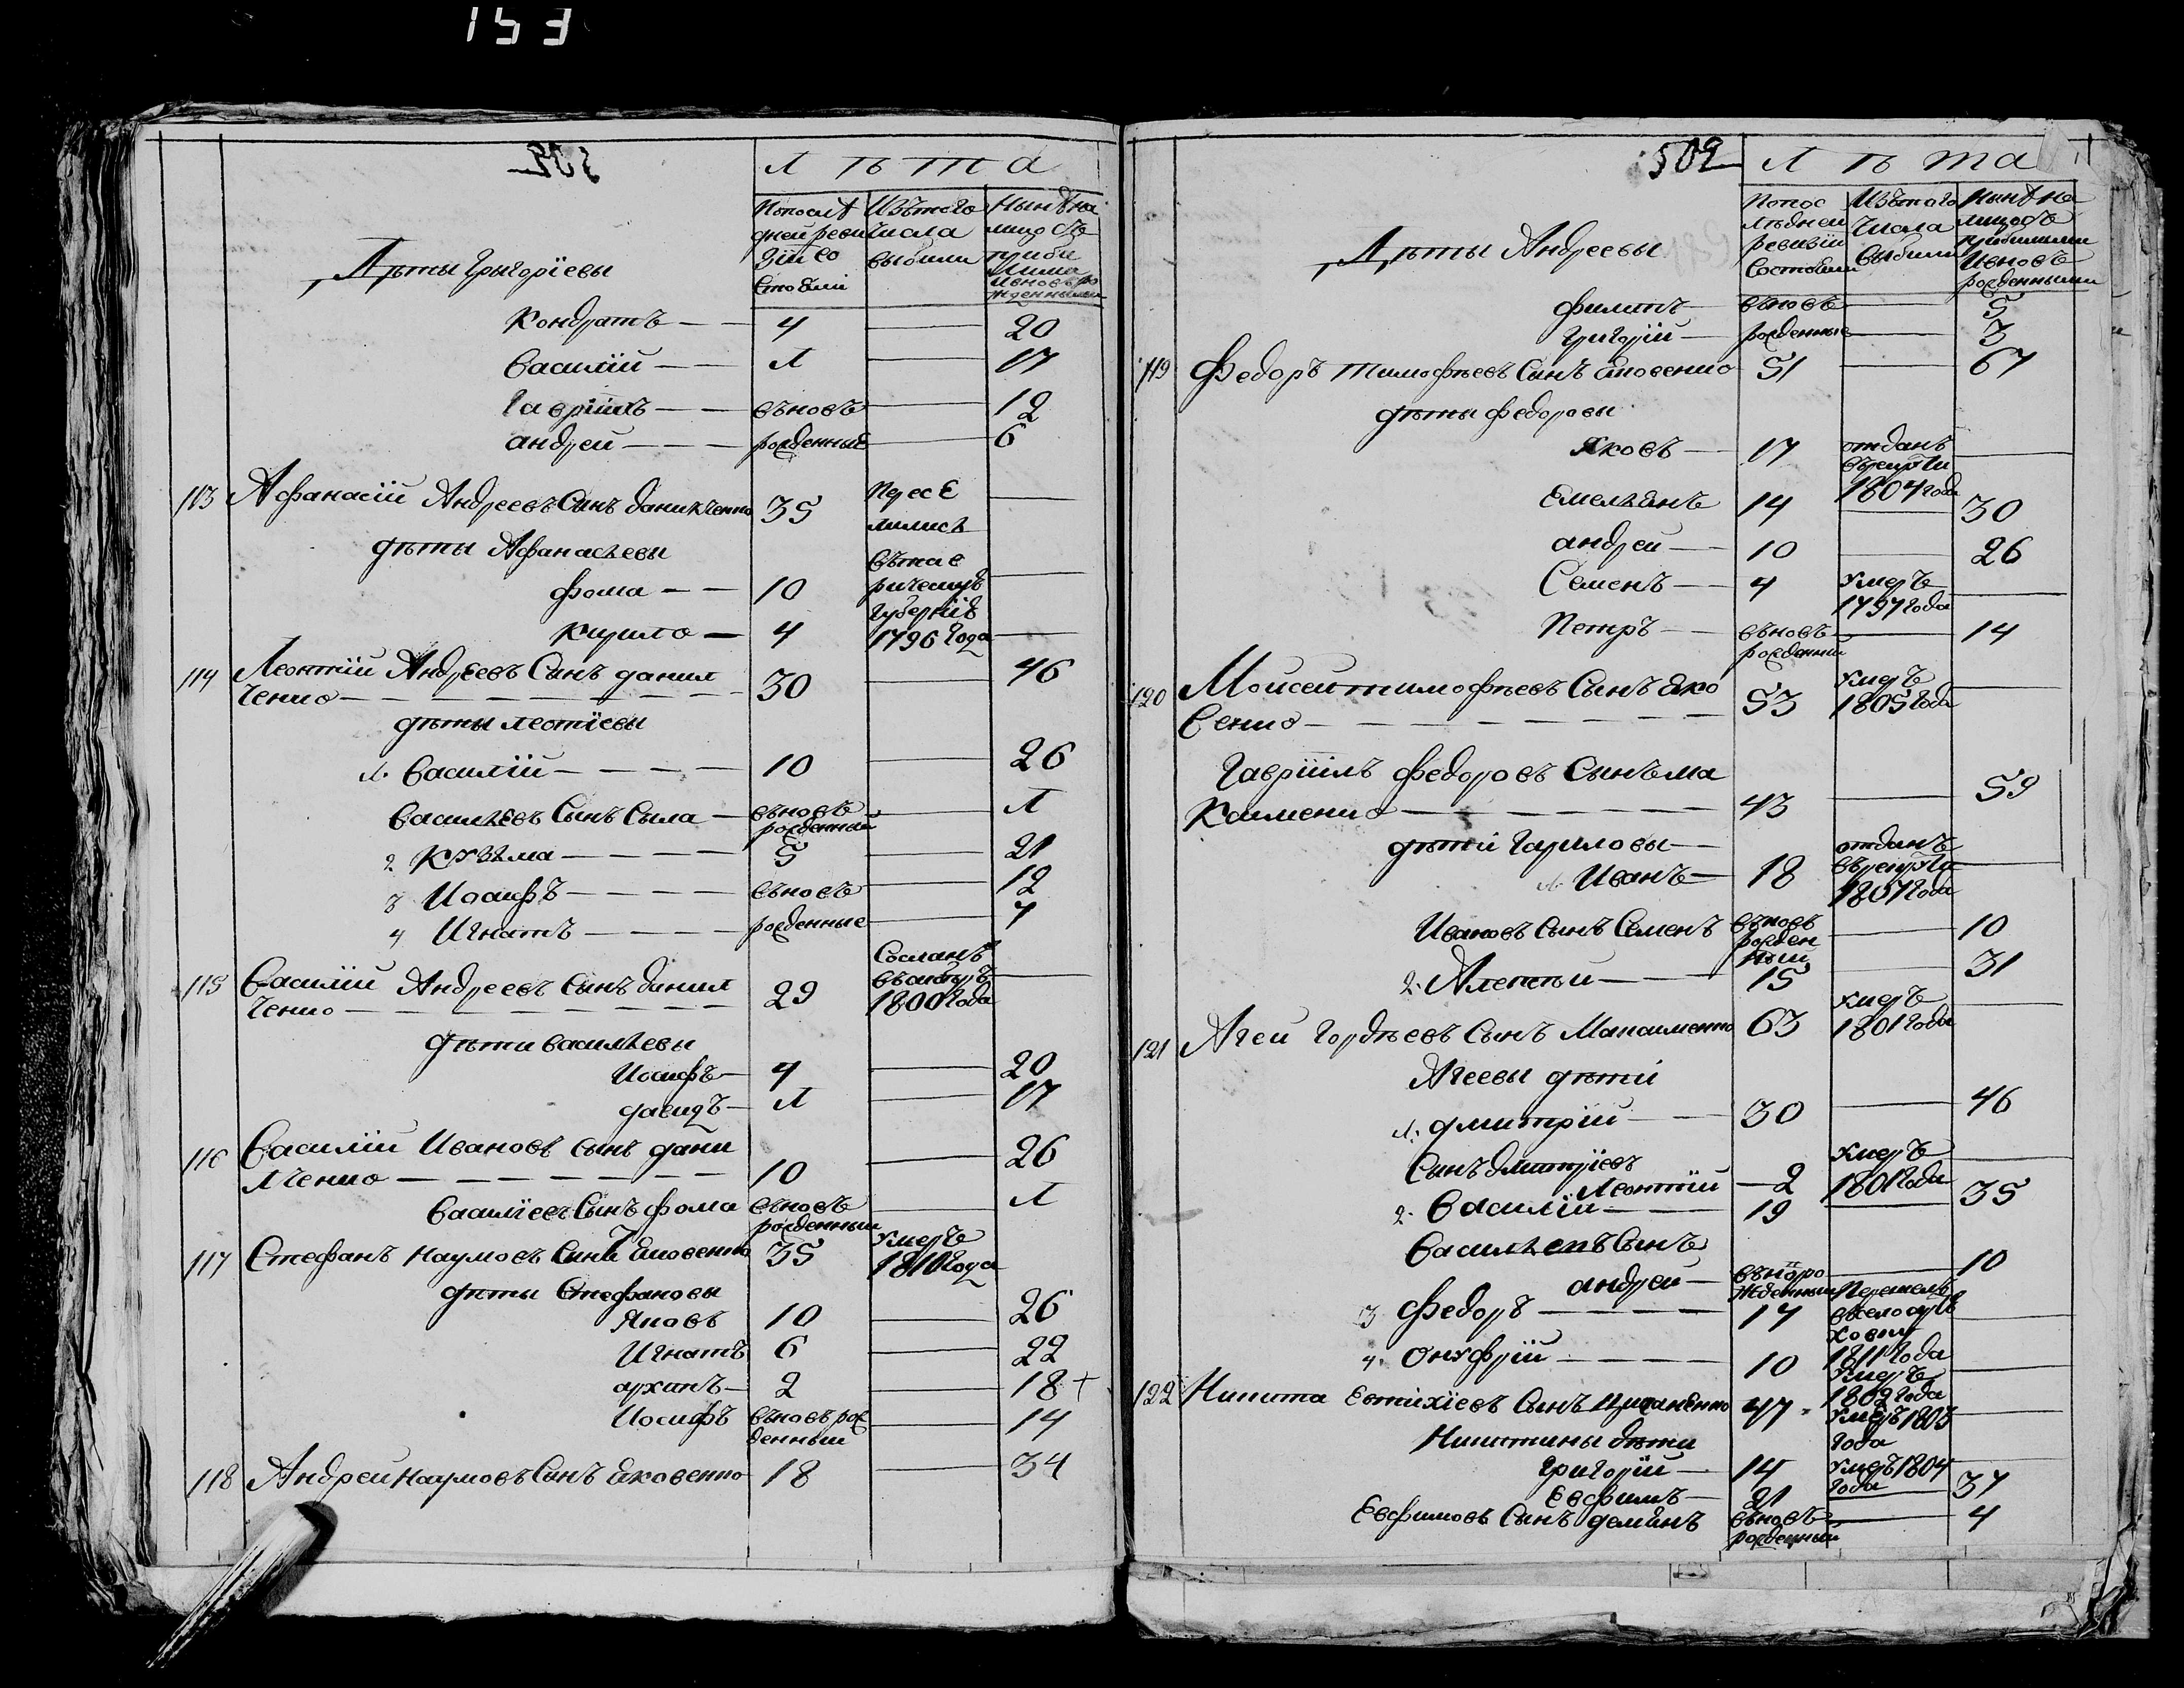 153
502
Лѣта
Попослѣ
дней реви
зіи со
стояли
Изътого
числа
выбыли
Нынѣ на
лицо съ
приби
лыми
ивновъ ро
жденными
Дѣты Григоріевы
Кондратъ — — 4 — 20
Василій — — 1 — 17
Гавріилъ — — вьновь — 12
андрей — — — рожденные — 6
113 Афанасій Андреевъ Сынъ данилченко 35 Пересе —
лились
дѣты Афанасьевы
вътав
фома — — 10 рическую —
Губернію
кирило — 4 1796 Года —
114 Леонтій Андреевъ Сынъ данил 30 — 46
ченко —
дѣты леонтіевы
1. Василій — — — — 10 — 26
Васильевъ Сынъ Сыла — вьновь — 1
рожденный
2. Кузьма — — — — 5 — 21
3 Иосифъ — — — — вьновь — 12
4 Игнатъ — — — — рожденные — 7
115 Василій Андреевъ Сынъ данил 29 Сосланъ —
ченко — 
всибирь
1800 Года
дѣти васильевы
Иосифъ — 4 — 20
давидъ — 1 — 17
116 Василій Ивановъ сынъ дани 10 — 26
лченко —
Василіевъ Сынъ фома вьновь — 1
рожденный
117 Стефанъ Наумовъ Сынъ Яковенко 35 умеръ
1810 Года
дѣты Стефановы
Яковъ 10 — 26
Игнатъ 6 — 22
архипъ — 2 — 18 +
Иосифъ вьновь рож — 14
денный
118 Андрей Наумовъ Сынъ Яковенко 18 — 34
502
Лѣта
Попос
лѣдней
ревизіи
состояли
Изътого
числа
выбыли
Нынѣ на
лицо съ
прибылыми
ивновь
рожденными
Дѣты Андреевы
филипъ — вьновь — 5
Григорій — рожденные — 3
119 Федоръ Тимофѣевъ Сынъ Яковенко 51 — 67
дѣты федоровы
Яковъ — 17 отданъ —
врекруты
1804 года
Емельянъ 14 — 30
андрей — 10 — 26
Семенъ — 4 умеръ —
1797 года
Петръ — вьновь — 14
рожденный
120 Моисей тимофѣевъ Сынъ Яко 53 умеръ —
венко — 1805 Года
Гавріилъ федоровъ Сынъ ма
каименко — 43 — 59
дѣти Гариловы —
1. Иванъ — 18 отданъ
врекруты —
1807 Года
Ивановъ Сынъ Семенъ вьновь — 10
рожден
ный
2. Алексѣй — 15 — 31
121 Агей Гордѣевъ Сынъ Макаименко 63 умеръ —
1801 Года
Агеевы дѣти
1. дмитрій — 30 — 46
Сынъ дмитріевъ
Леонтий — 2 умеръ —
1801 Года
2. Василій — — 19 — 35
Васильевъ Сынъ
андрей — вьново ро — 10
жденный
3 федоръ — — — — 17 Перешелъ
4. Онуфрій — — — — 10
1811 Года
122 Никита Евтихіевъ Сынъ 47 умеръ —
1802 Года
Никитины дѣти
умеръ 1803
Года
Григорій — 14 умеръ 1804
Года
Евфимъ — 21 — 37
Евфимовъ Сынъ демьянъ вьновь — 4
рожденный